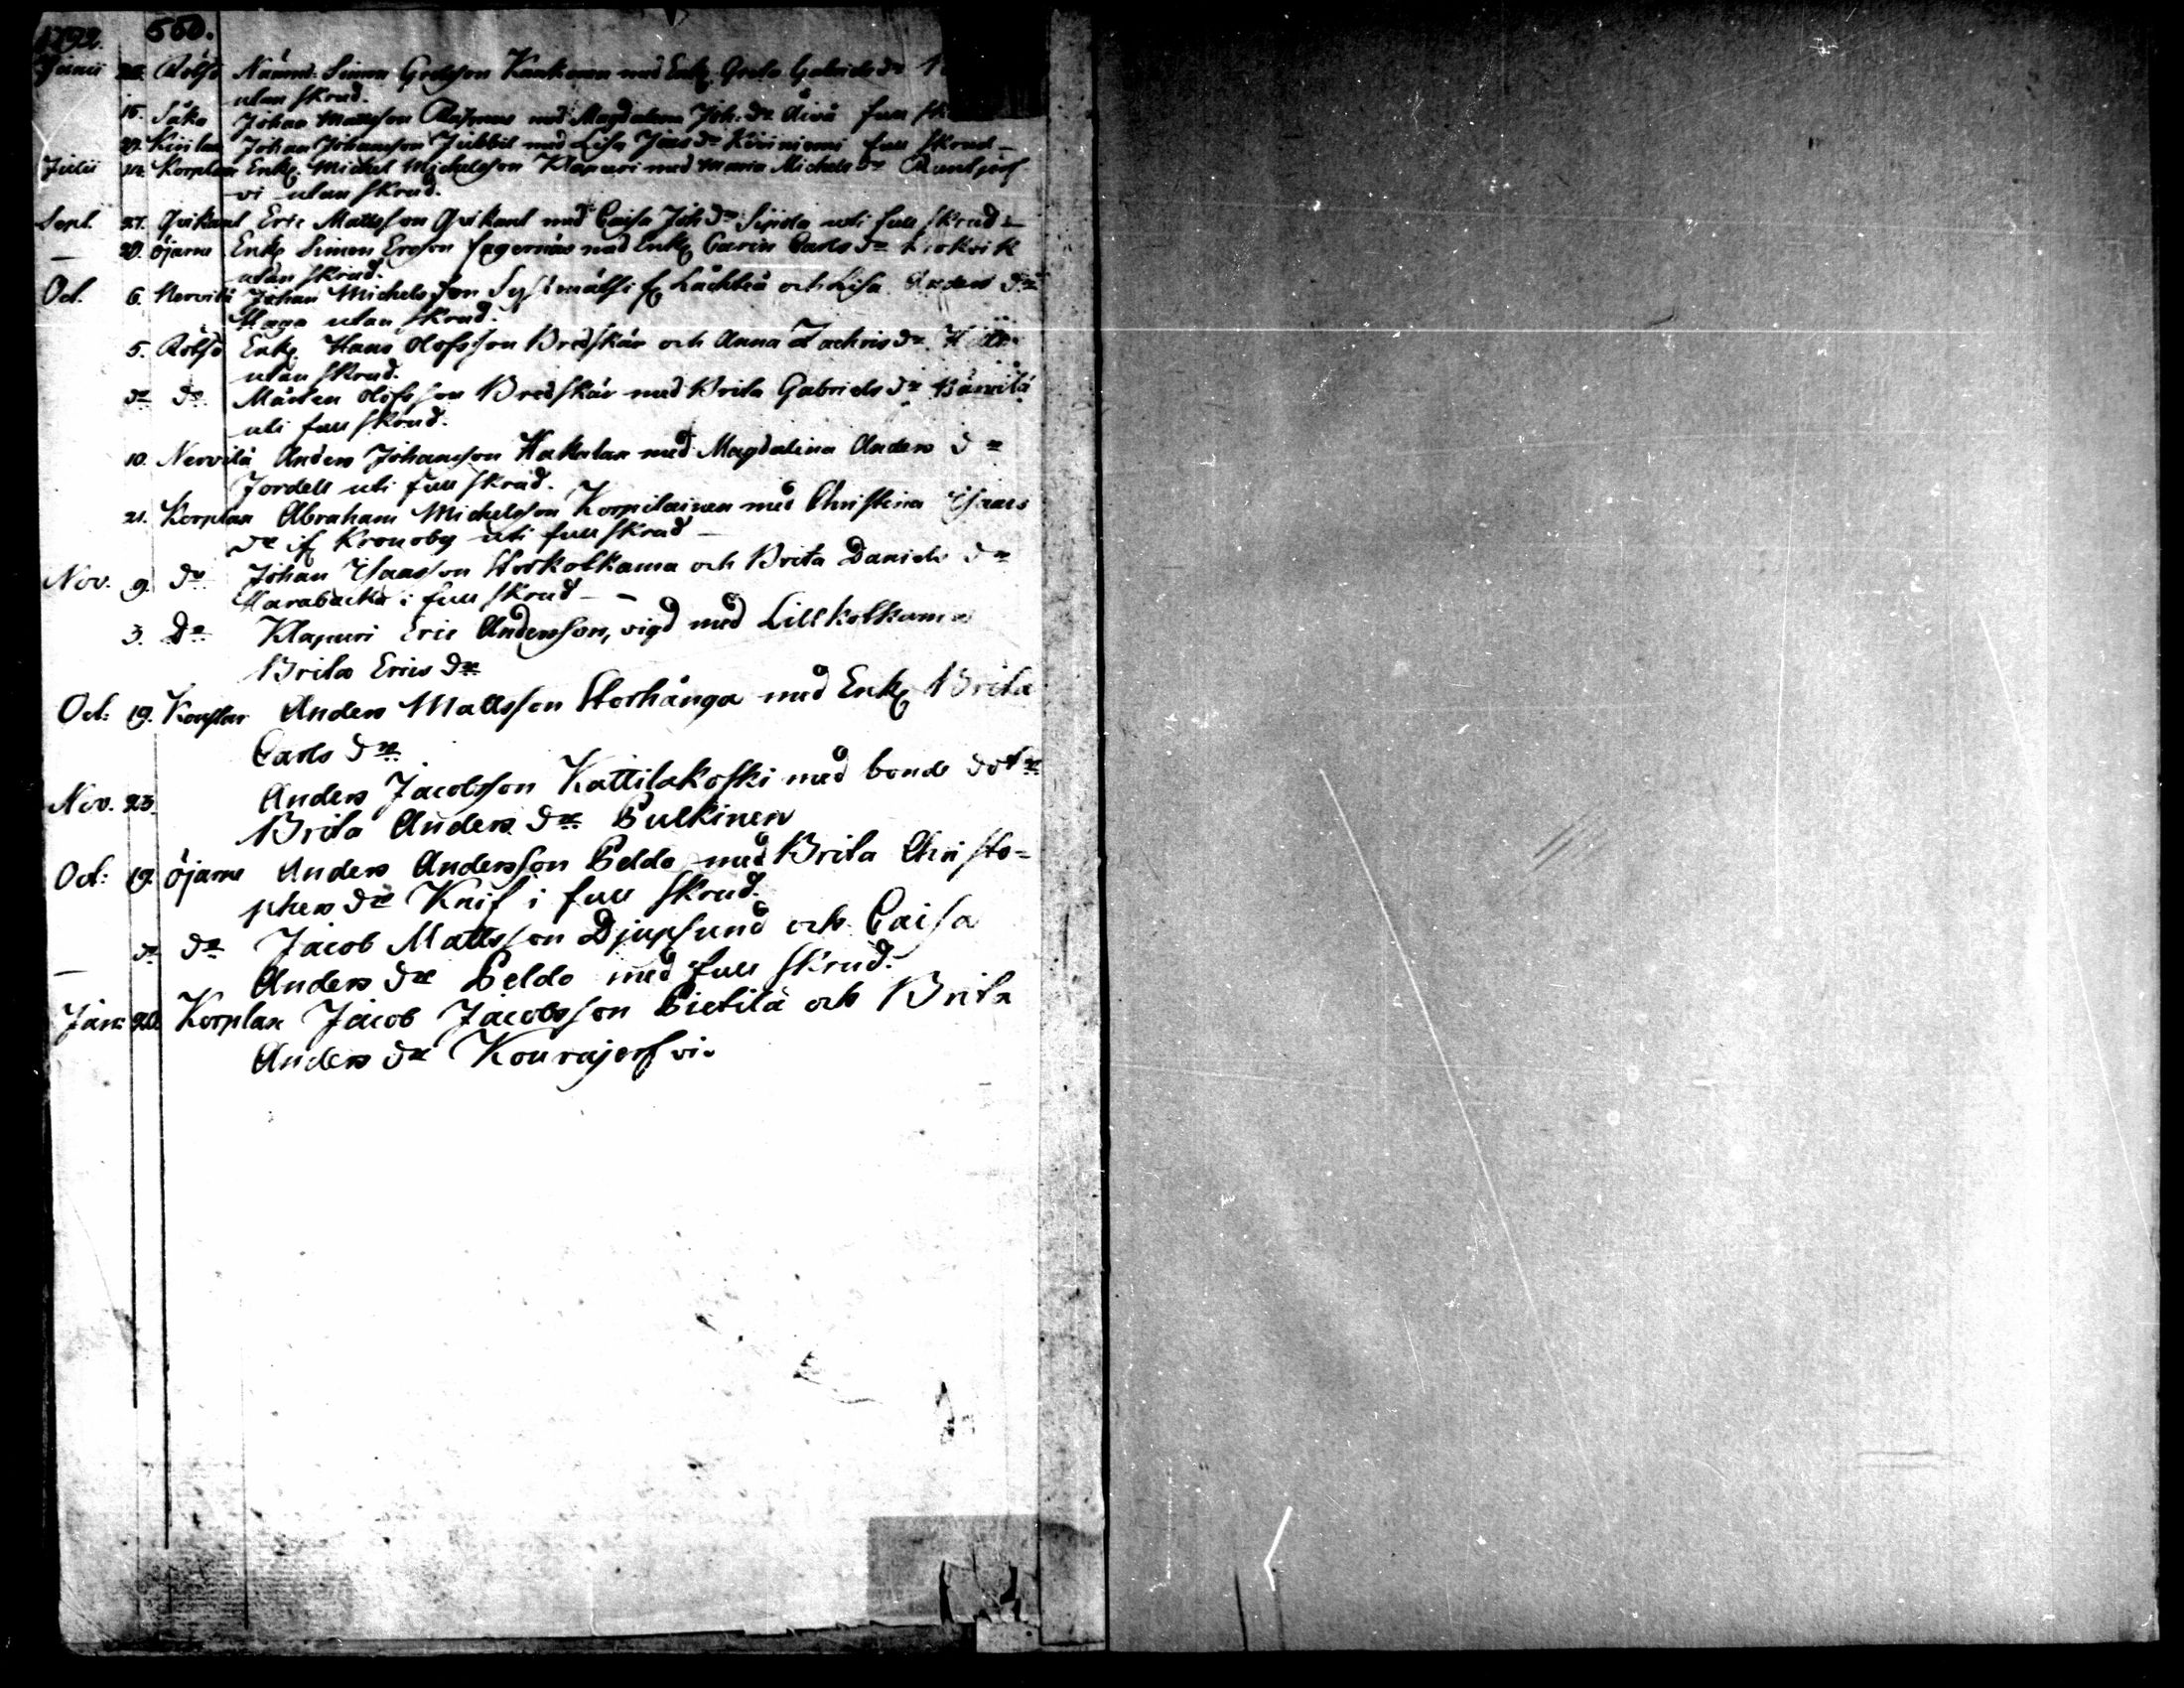 1792. 550.
Junii 20. Rölsö Nämnd: Simon Grelsson Kankonen med Enk. Greta Gabriels dr
utan skrud.
15. Såka Johan Mattsson Rasmus med Magdalena Joh: dr Åivå full
29. Kivilax Johan Johansson Jubbil med Lisa Jais dr Kiviniemi full skrud –
Julii 14. Korplax Enkl. Michel Michelsson Klapuri med Maria Michels dr
vi utan skrud.
Sept. 27. Qvikant Eric Mattsson Qvikant med Caisa Joh dr Sipola uti full skrud –
– 28. Öjarne Enkl Simon Ersson Fagernäs med Enk Carin Carls dr
utan skrud.
Oct. 6. Nervilä Johan Michelsson fr Låchteå och Lisa Anders dr
Haga utan skrud.
5. Rölsö Enkl. Hans Olofsson Bredskär och Anna Zachris dr
utan skrud.
dr dr Mårten Olofsson Bredskär med Brita Gabriels dr
uti full skrud.
10. Nervilä Anders Johansson Hakalax med Magdalena Anders dr
Jordell uti full skrud.
21. Korplax Abraham Michelsson Korpilainen med Christina Isaacs
dr if Kronoby uti full skrud –
Nov. 9. dr Johan Isaacsson Storkolkama och Brita Daniels dr
Harabacka i full skrud – –
3. Dr Klapuri Eric Andersson, vigd med Lillkolkama
Brita Erics dr
Oct: 19. Korplax Anders Mattsson Storhånga med Enk Brita
Carls dr
Nov. 23. Anders Jacobsson Kattilakoski med bonde dotr
Brita Anders dr Pulkinen
Oct: 19. Öjarne Anders Andersson Peldo med Brita Christo=
phers dr Knif i full skrud.
– dr dr Jacob Mattsson Djupsund och Caisa
Anders dr Peldo med full skrud.
Jan: 20. Korplax Jacob Jacobsson Pietilä och Brita
Anders dr Kourajerfvi.